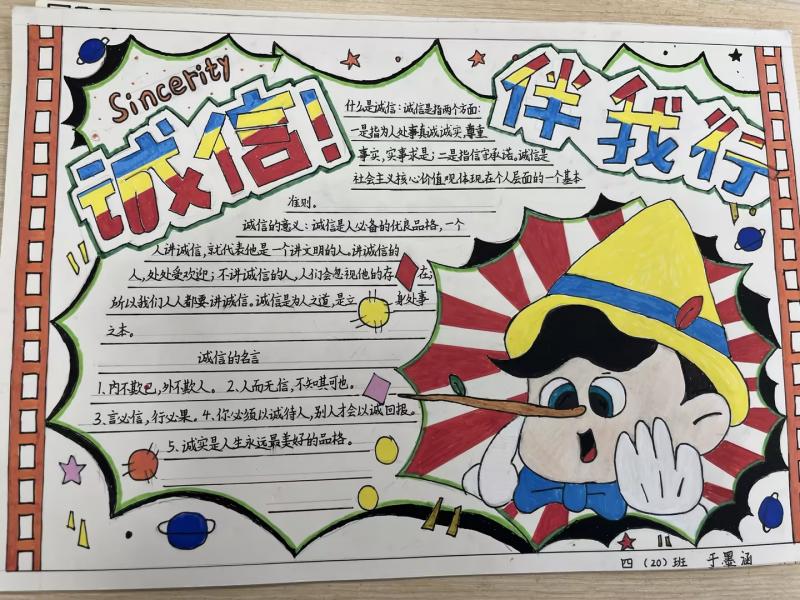 Sincerity
诚信!
伴我行
什么是诚信:诚信是指两个方面:
一是指为人处事真诚诚实,尊重
事实,实事求是;二是指信守承诺。诚信是
社会主义核心价值观体现在个人层面的一个基本
准则。
诚信的意义:诚信是人必备的优良品格,一个
人讲诚信,就代表他是一个讲文明的人。讲诚信的
人,处处受欢迎;不讲诚信的人,人们会忽视他的存在;
所以我们人人都要讲诚信。诚信是为人之道,是立身处事
之本。
诚信的名言
1.内不欺己,外不欺人。 2.人而无信,不知其可也。
3.言必信,行必果。 4.你必须以诚待人,别人才会以诚回报。
5.诚实是人生永远最美好的品格。
四(20)班 于墨涵